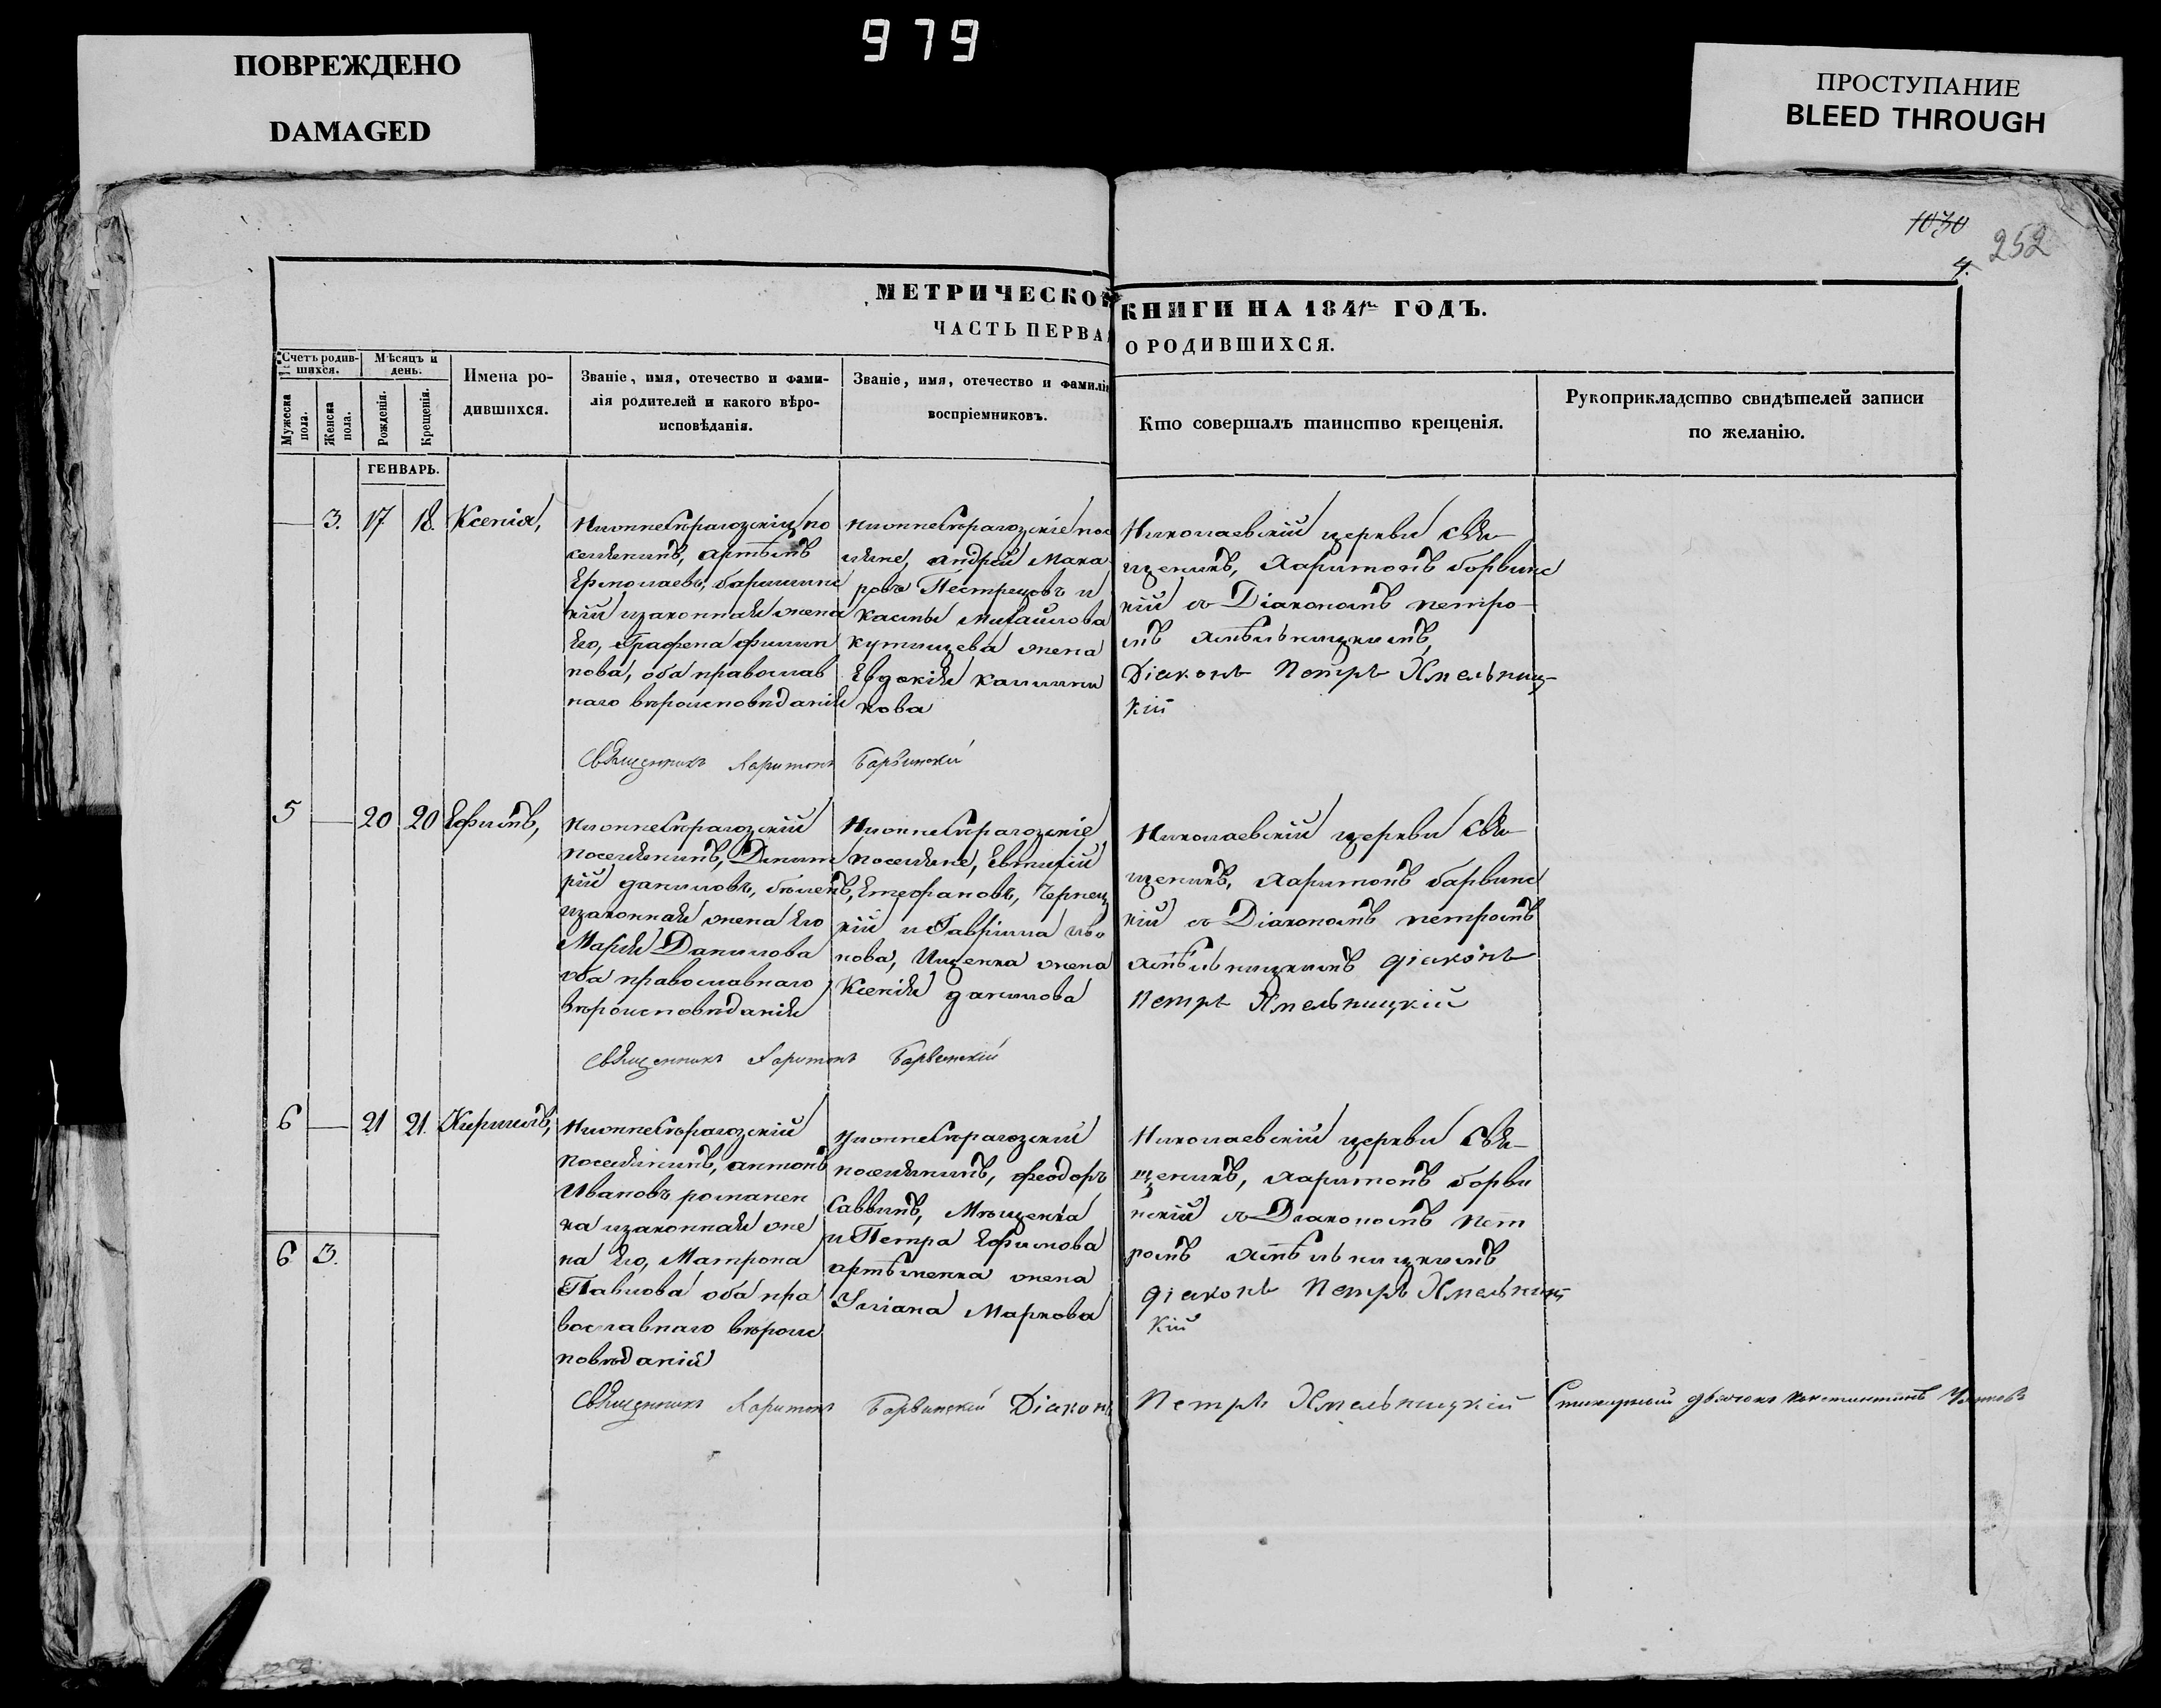 979
ПОВРЕЖДЕНО
DAMAGED
ПРОСТУПАНИЕ
BLEED THROUGH
1030
252
4.
МЕТРИЧЕСКОЙ КНИГИ НА 1841й ГОДЪ.
ЧАСТЬ ПЕРВАЯ О РОДИВШИХСЯ.
Счетъ родив-
шихся.
Мужеска пола.
Женска пола.
Мѣсяцъ и
день.
Рожденія.
Крещенія.
Имена ро-
дившихся.
Званіе, имя, отечество и фами-
лія родителей и какого вѣро-
исповѣданія.
Званіе, имя, отечество и фамилія
воспріемниковъ.
Кто совершалъ таинство крещенія.
Рукоприкладство свидѣтелей записи
по желанію.
ГЕНВАРЬ.
3. 17 18 Ксенія,
Нижнесѣрагозскій по
селянинъ, артемъ
Ермолаевъ,
кій изаконная жена
Его, Графена филип
пова, оба православ
наго вѣроисповѣданія
Нижнесѣрагозскіе пос
ляне, андрей Мака
ровъ Пестрецовъ и
михайлова
жена
Евдокія калинни
кова
Николаевскій церкви Свя
щеникъ, Харитонъ борвинс
кій съ Діакономъ петро
мъ хмельницкимъ,
Діаконъ Петръ Хмельниц-
кій
Священникъ Харитонъ Барвинскій
5 20 20 Ефимъ,
Нижнесѣрагозскій
поселянинъ, Димит
рій даниловъ,
изаконная жена Его
Марія Данилова
оба православнаго
вѣроисповѣданія
Нижнесѣрагозскіе
поселяне, Евтихій
Стефановъ, Чернец
кій и Гавріила ива
нова, Ищенка жена
Ксенія данилова
Николаевскій церкви Свя
щеникъ, Харитонъ барвинс
кій съ Діакономъ петромъ
хмельницкимъ діаконъ
Петръ Хмельницкій
Священникъ Харитонъ Барвинскій
6 21 21. Кирилъ,
Нижнесѣрагозскій
поселянинъ, антонъ
Ивановъ романен
ка изаконная же
на Его, Матрона
Павлова оба пра
вославнаго вѣроис
повѣданія
Нижнесѣрагозскій
поселянинъ, феодоръ
Саввинъ, Мищенка
и Петра Ефимова
артеменка жена
Уліана Маркова
Николаевскій церкви Свя
щеникъ, харитонъ борви
нскій съ Діакономъ пет
ромъ хмельницкимъ
діаконъ Петръ Хмельниц
кій
6 3.
Священникъ Харитонъ Барвинскій Діаконъ Петръ Хмельницкій Стихарный дьячокъ Константинъ